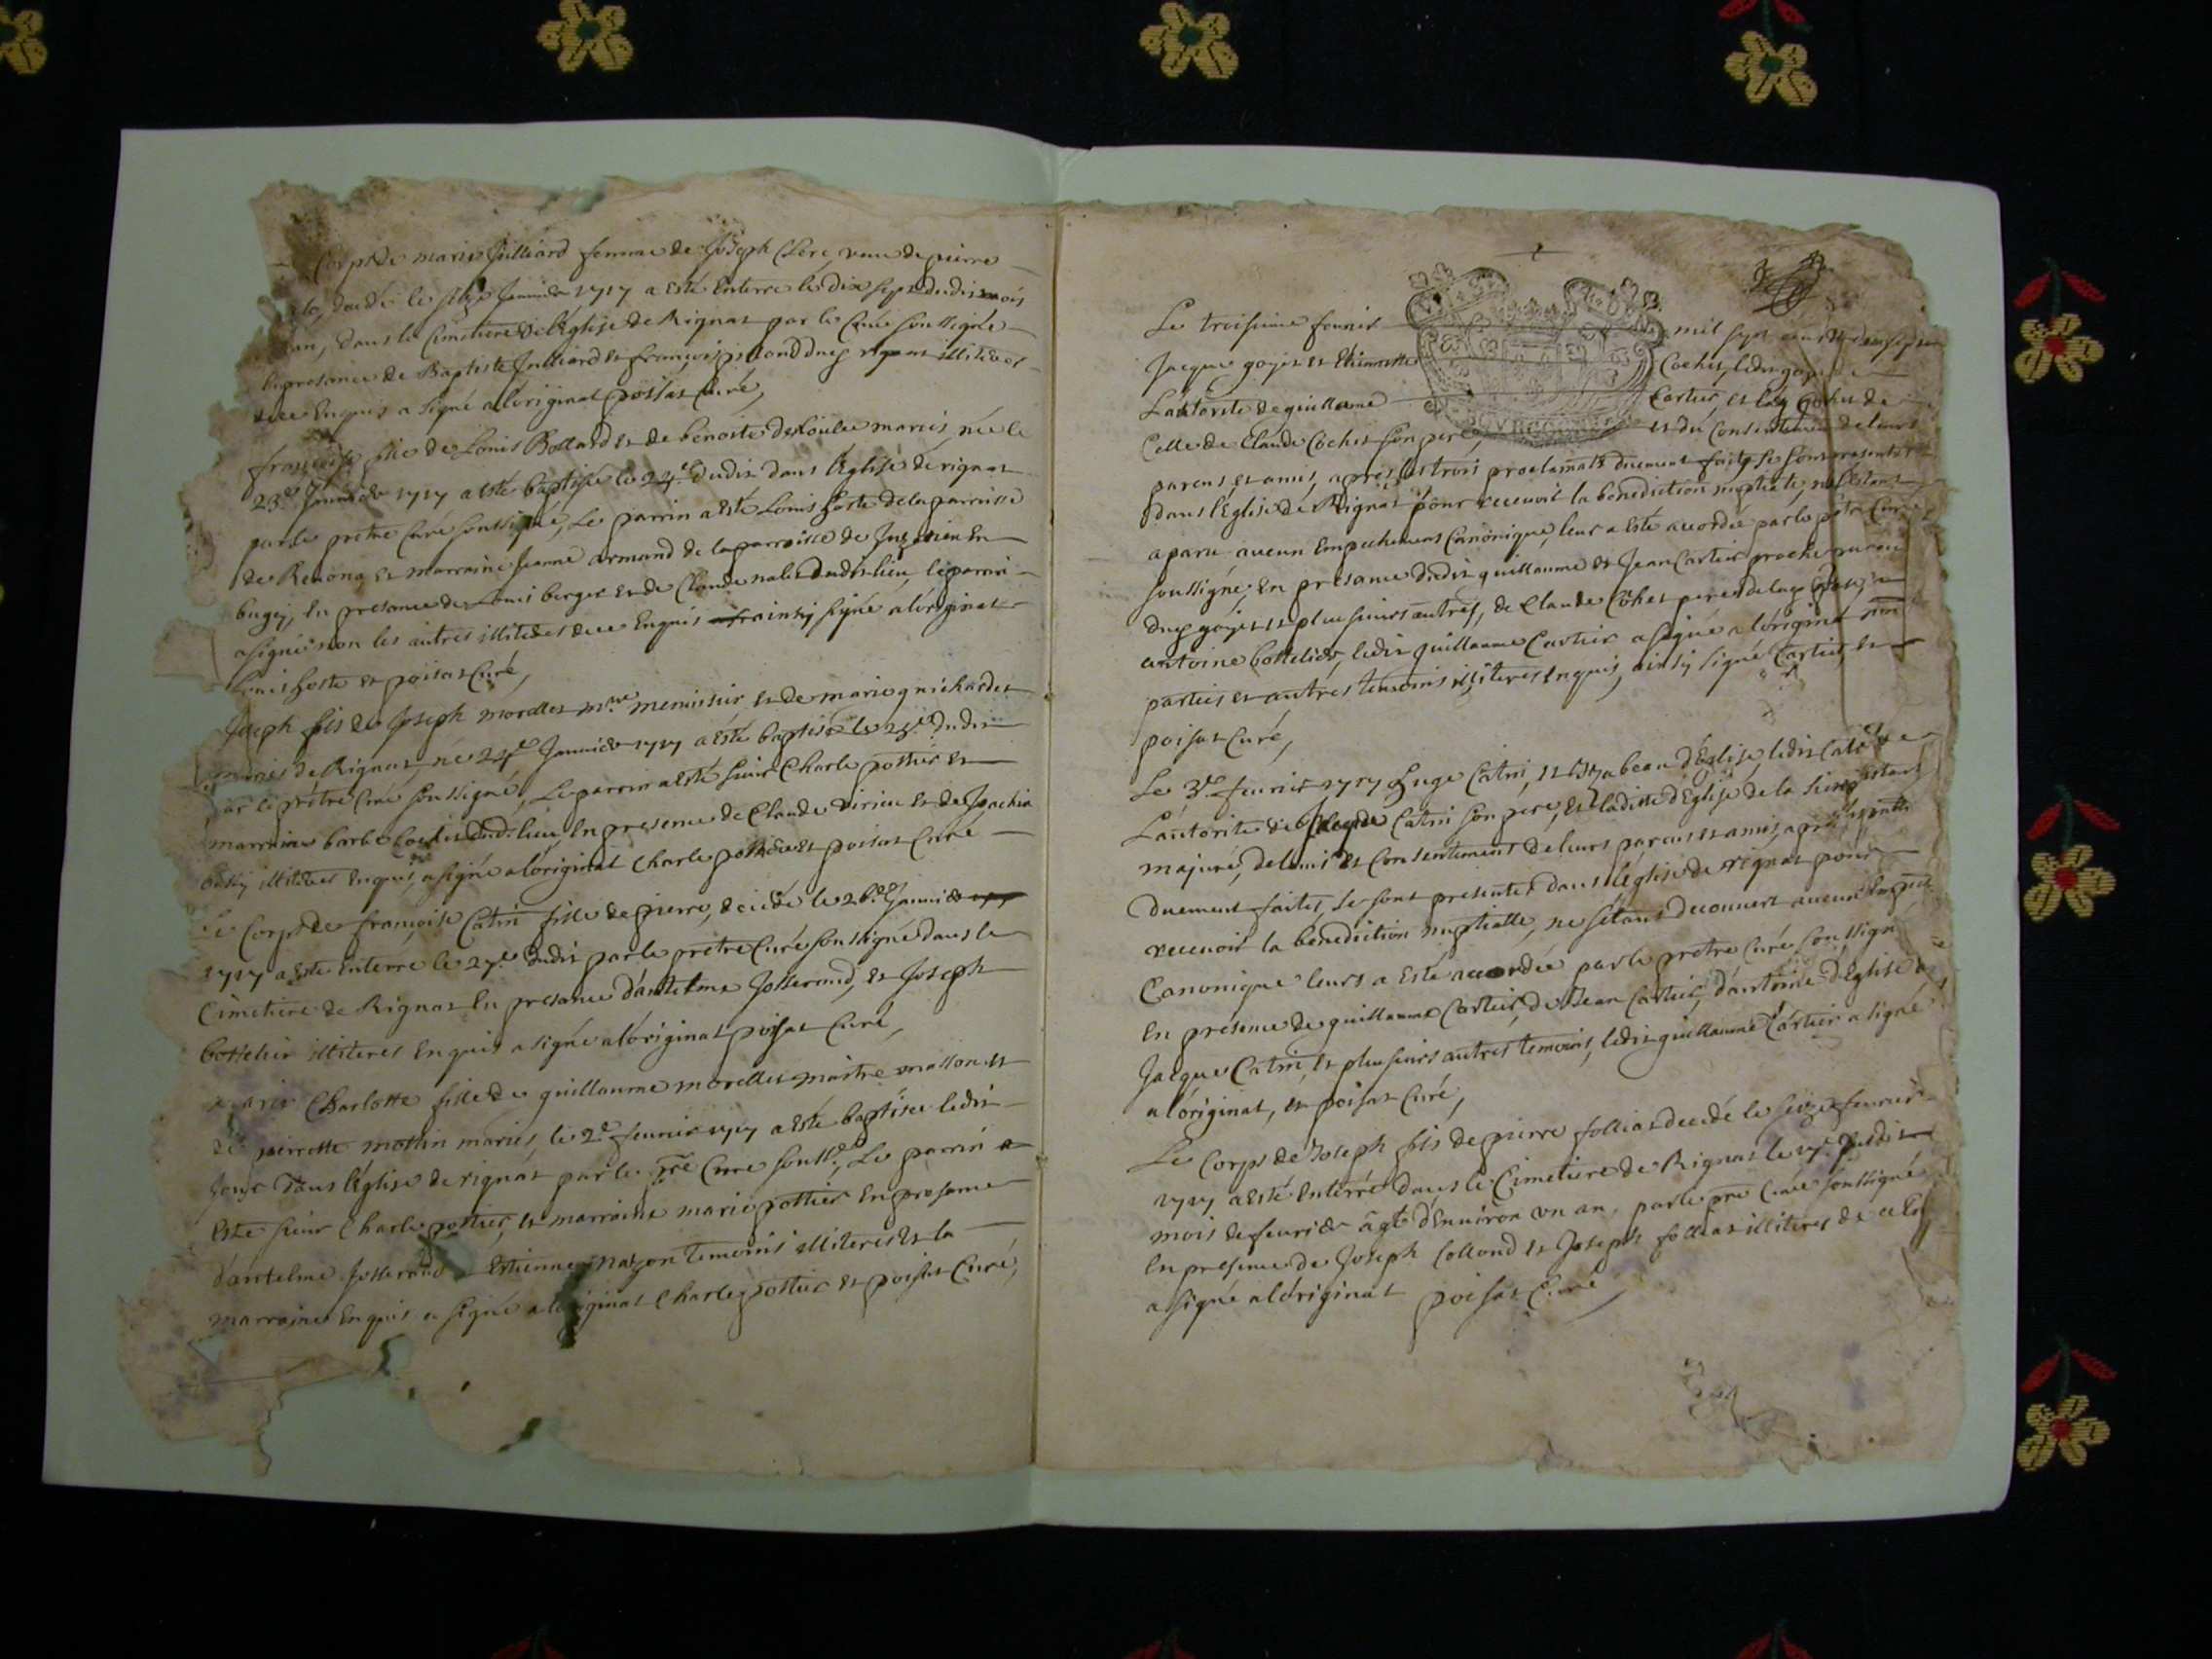 Corps de marie Julliard femme de Joseph Clere, veuve de pierre
decédé le seize Janvier 1717 a esté Enterré le dix sept dudit mois
an, dans le Cimetiere de l'Eglise de Rignat par le Curé soussigné
En presance de Baptiste Julliard et françois pilland dudit rignat illiteres
de ce Enquis a signé a l'original poisat Curé,
françoise fille de Louis Bollard et de benoite mariés, née le
23e Janvier 1717 a esté baptisée le 24e dudit dans l'Eglise de rignat
par le pretre Curé soussigné, Le parrin a esté Louis hoste de la parroisse
de Revona et marraine Jeanne armand de la parroisse de Jurieu En
bugey, En presance de Louis berger et de Claude dudit lieu, le parrin
a signé non les autres illiteres de ce Enquis ainsy signé a l'original
Louis hoste et poisat Curé,
Joseph fils de Joseph morellet mre menuisier et de marie guichardet
mariés de Rignat, né 24e Janvier 1717 a esté baptisé le 25e dudit
par le prêtre Curé soussigné, Le parrin a esté sieur Charle pottier et
marraine barbe Cochet dudit lieu, En presence de Claude virieu et de Joachin
illiteres Enquis, a signé a l'original Charle pottier et poisat Curé
Le Corps de françoise Catrin fille de pierre, decedé le 26e Janvier
1717 a esté Enterré le 27e dudit par le pretre Curé soussigné dans le
Cimetiere de Rignat En presance d'antelme Josserand, et Joseph
bottelier illiteres Enquis a signé a l'original poisat Curé,
marie Charlotte fille de guillaume morellet maitre masson et
de pierrette mottin mariés, le 2e fevrier 1717 a esté baptisée ledit
Jour dans l'Eglise de rignat par le pre Curé soussé, Le parrin a
esté sieur Charle pottier, et marraine marie pottier En presance
d'antelme Josserand Estienne nazon temoins illiteres et la
marraine Enquis a signé a l'original Charle pottier et poisat Curé,
Le troisieme fevrier mil sept cent dix sept
Jacque goyet et Etiennette Cochet, ledit goyet de
L'autorité de guillaume Cartier, et lad Cochet de
Celle de Claude Cochet son pere, et du Consentement de leurs
parens, et amis, apres les trois proclamats duement faits se sont presentes
dans l'Eglise de Rignat pour recevoir la benediction nuptiale, ne s'estant
aparu aucun Empechement Canonique, leur a esté accordée par le Curé
soussigné, En presance dudit guillaume et Jean Cartier proche parens
dudt goyet et plusieurs autres, de Claude Cochet pere de lad Cochet,
antoine bottelier, ledit guillaume Cartier a signé a l'original non
parties et autres temoins illiteres Enquis, ainsy signé Cartier, et
poisat Curé,
Le 3e fevrier 1717 Catrin, et Ysabeau d'Eglise, ledit Catrin de
L'autorité de Catrin son pere, et ladite d'Eglise de la sienne estant
majeure, de l'avis et Consentement de leurs parens et amis, apres
duement faites, se sont presentes dans l'église de rignat pour
recevoir la benediction nuptialle, ne s'étant decouvert aucun
Canonique leurs a esté accordée par le pretre Curé soussigné
En presence de guillaume Cartier, de Jean Cartier, d'antoine d'Eglise de
Jacque Catrin, et plusieurs autres temoins, ledit guillaume Cartier a signé
a l'original, et poisat Curé,
Le Corps de Joseph fils de pierre folliat decedé le seize fevrier
1717 a esté Enterré dans le Cimetiere de Rignat le 17e dudit
mois de fevrier âgé d'Environ un an, par le pre Curé soussigné
En presence de Joseph Collond et Joseph folliat illiteres de ce Enq
a signé a l'original poisat Curé,